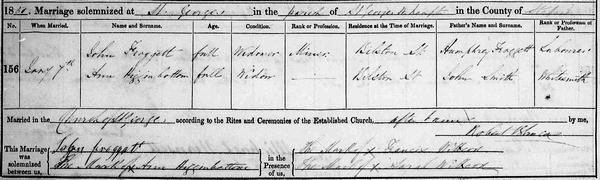 18 Marriage solemnized at St. George's in the parish of in the County of
No. When Married. Name and Surname. Age. Condition. Rank or Profession. Residence at the Time of Marriage. Father's Name and Surname. Rank or Profession of Father.
156 7th John Froggatt full Widower Miner Bilston St. Humphrey Froggatt Laborer
Ann Higginbottom full Widow Bilston St. John Smith
Married in the Church of St George according to the Rites and Ceremonies of the Established Church, after by me,
Robert
This Marriage was solemnized between us, John froggatt
The Mark of x Ann Higginbottom
in the Presence of us, The Mark of x Francis
The Mark of x Sarah